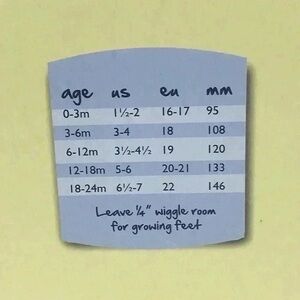 age us eu mm
0-3m 1½-2 16-17 95
3-6m 3-4 18 108
6-12m 3½-4½ 19 120
12-18m 5-6 20-21 133
18-24m 6½-7 22 146
Leave ¼" wiggle room
for growing feet